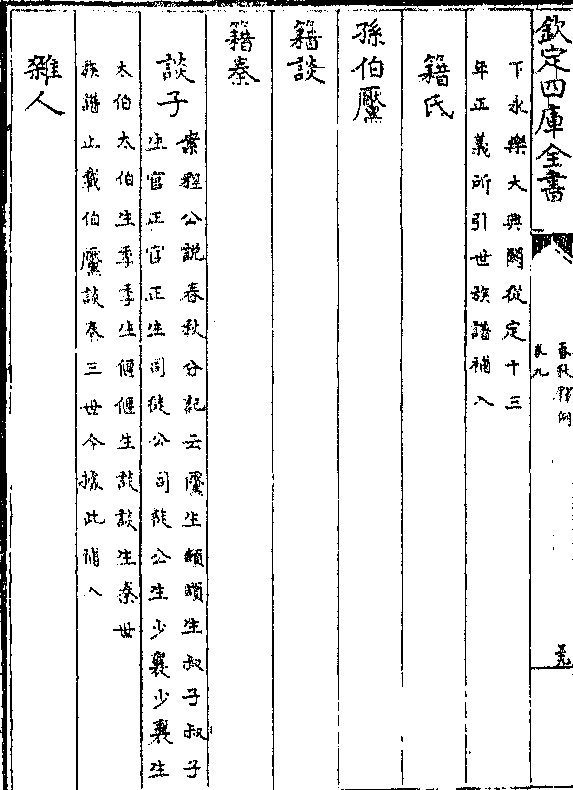 欽定四庫全書
春秋釋例
卷九
下永樂大典闕從定十三
年正義所引世族譜補入
籍氏
孫伯黶
籍談
籍秦
談子
案程公說春秋分記云黶生頡頡生叔子叔子
生官正官正生司徒公司徒公生少襄少襄生
太伯太伯生季季生偃偃生談談生秦世
族譜止載伯黶談秦三世今據此補入
雜人